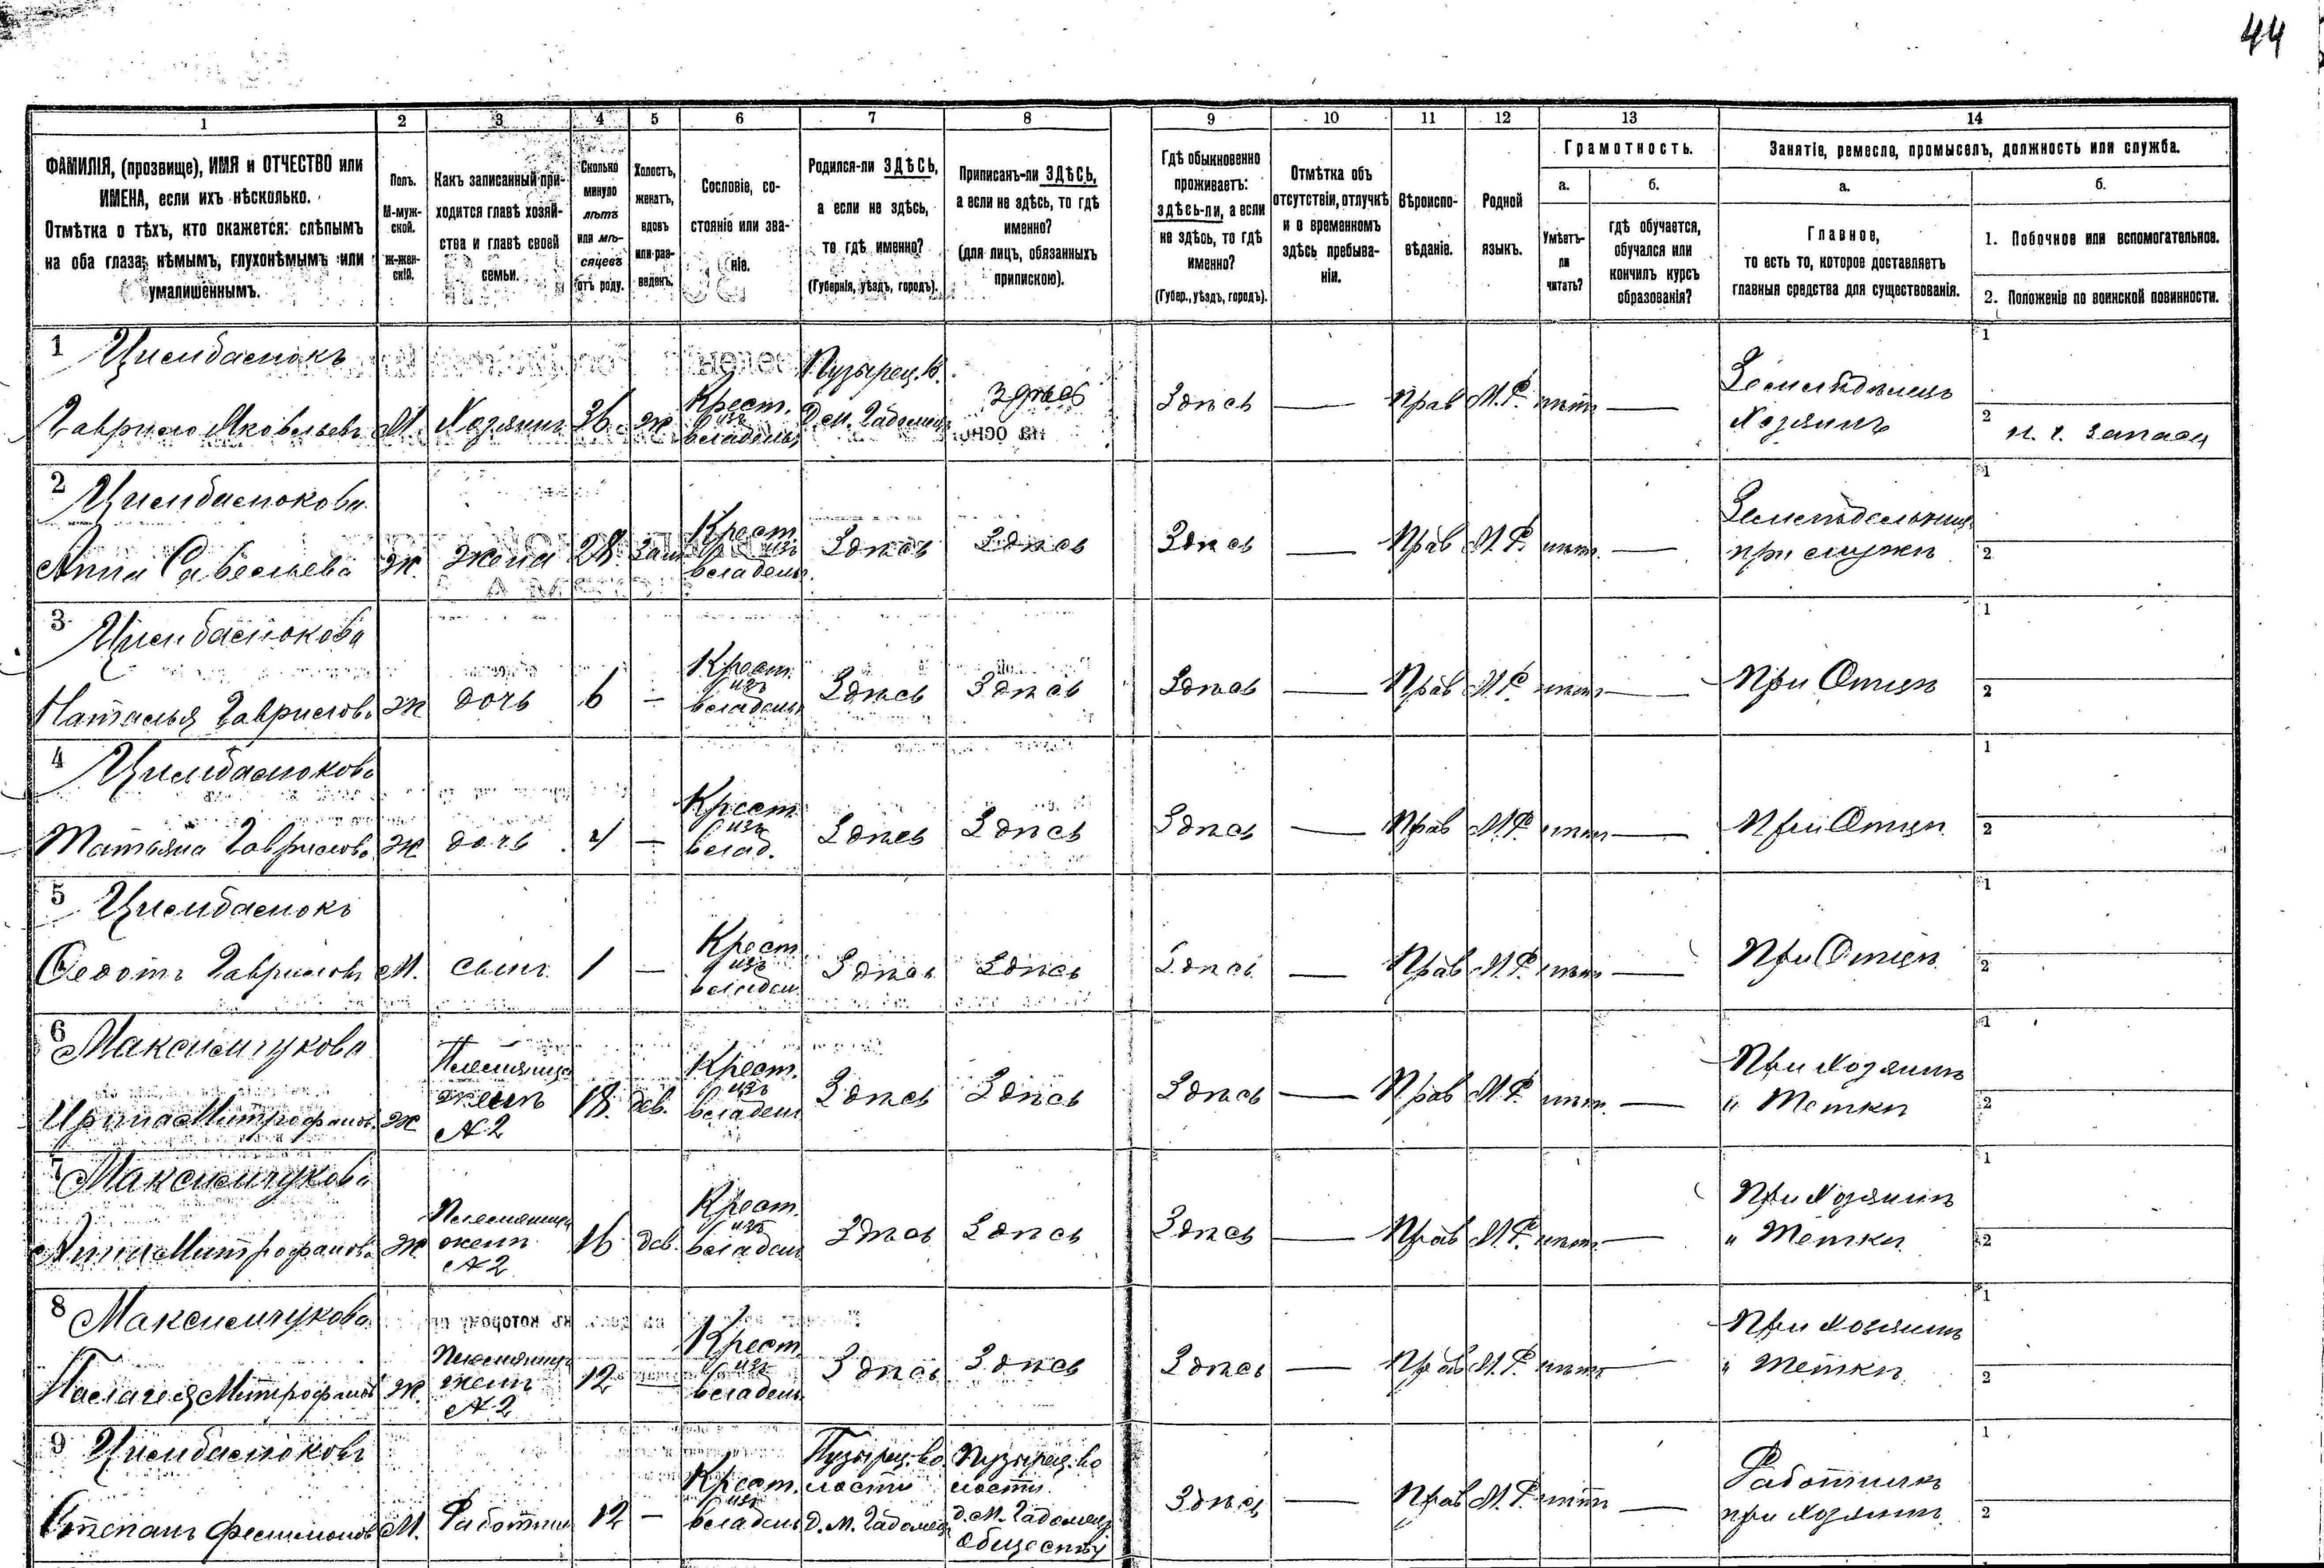 44
1 2 3 4 5 6 7 8 9 10 11 12 13 14
ФАМИЛІЯ, (прозвище), ИМЯ и ОТЧЕСТВО или
ИМЕНА, если ихъ нѣсколько.
Отмѣтка о тѣхъ, кто окажется: слѣпымъ
на оба глаза, нѣмымъ, глухонѣмымъ или
умалишеннымъ.
Полъ.
М-муж-
ской.
Ж-жен-
скій.
Какъ записанный при-
ходится главѣ хозяй-
ства и главѣ своей
семьи.
Сколько
минуло
лѣтъ
или мѣ-
сяцевъ
отъ роду.
Холостъ,
женатъ,
вдовъ
или раз-
веденъ.
Сословіе, со-
стояніе или зва-
ніе.
Родился-ли ЗДѢСЬ,
а если не здѣсь,
то гдѣ именно?
(Губернія, уѣздъ, городъ).
Приписанъ-ли ЗДѢСЬ,
а если не здѣсь, то гдѣ
именно?
(для лицъ, обязанныхъ
припискою).
Гдѣ обыкновенно
проживаетъ:
здѣсь-ли, а если
не здѣсь, то гдѣ
именно?
(Губер., уѣздъ, городъ).
Отмѣтка объ
отсутствіи, отлучкѣ
и о временномъ
здѣсь пребыва-
ніи.
Вѣроиспо-
вѣданіе.
Родной
языкъ.
Грамотность.
а.
Умѣетъ-
ли
читать?
б.
гдѣ обучается,
обучался или
кончилъ курсъ
образованія?
Занятіе, ремесло, промыселъ, должность или служба.
а.
Главное,
то есть то, которое доставляетъ
главныя средства для существованія.
б.
1. Побочное или вспомогательное.
2. Положеніе по воинской повинности.
1 Цимбалюкъ
Гаврило Яковлевъ М. Хозяинъ 36 ж Крест. изъ владѣльч. Пузырец. в. Д. М. Гадомецъ здѣсь Здѣсь — Прав М.Р. нѣтъ — Земледѣлецъ Хозяинъ 1 2
2 Цимбалюкова
Анна Савельева ж. жена 28 зам Крест. изъ владѣльч. Здѣсь Здѣсь Здѣсь — Прав М.Р. нѣтъ — при мужѣ 1 2
3 Цимбалюкова
Наталья Гаврилова ж дочь 6 — Крест. изъ владѣльч. Здѣсь Здѣсь Здѣсь — Прав М.Р. нѣтъ — При Отцѣ 1 2
4 Цимбалюкова
Татьяна Гаврилова ж дочь 4 — Крест. изъ влад. Здѣсь Здѣсь Здѣсь — Прав М.Р. нѣтъ — При Отцѣ 1 2
5 Цимбалюкъ
Федотъ Гавриловъ М. сынъ 1 — Крест. изъ владѣл Здѣсь Здѣсь Здѣсь — Прав М.Р. нѣтъ — При Отцѣ 1 2
6 Максимчукова
Ирина Митрофанов. ж Племяница жены №2 18. дев. Крест. изъ владѣл Здѣсь Здѣсь Здѣсь — Прав М.Р. нѣтъ — При Хозяинѣ " Теткѣ 1 2
7 Максимчукова
Анна Митрофанова ж Племяница жены №2 16 дев. Крест. изъ владѣл Здѣсь Здѣсь Здѣсь — Прав М.Р. нѣтъ — При Хозяинѣ " Теткѣ 1 2
8 Максимчукова
Пелагея Митрофанов ж. Племяница жены №2 12 — Крест. изъ владѣл Здѣсь Здѣсь Здѣсь — Прав М.Р. нѣтъ — При Хозяинѣ " Теткѣ 1 2
9 Цимбалюковъ
Степанъ Филимоновъ М. Работник 12 — Крест. изъ владѣл Пузырец. волости Д. М. Гадомец Пузырец. волости д. М. Гадомец. Обществу Здѣсь — Прав М.Р. нѣтъ — Работникъ при Хозяинѣ 1 2